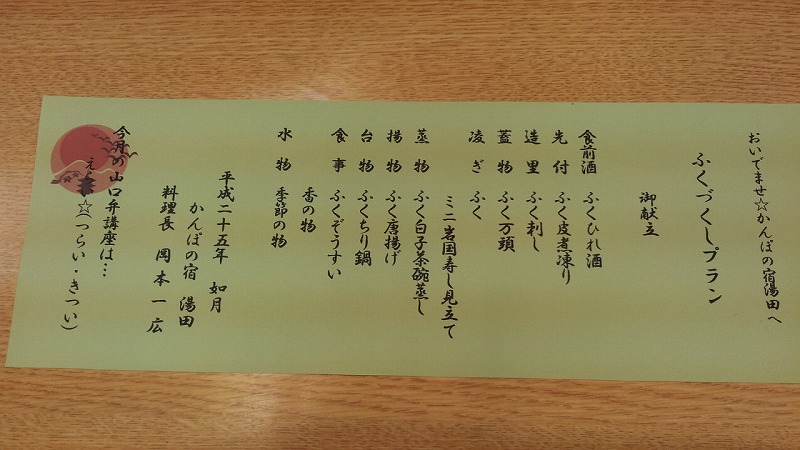 おいでませ☆かんぽの宿湯田へ
ふくづくしプラン
御献立
食前酒 ふくひれ酒
先付 ふく皮煮凍り
造里 ふく刺し
蓋物 ふく万頭
凌ぎ ふく
ミニ岩国寿し見立て
蒸物 ふく白子茶碗蒸し
揚物 ふく唐揚げ
台物 ふくちり鍋
食事 ふくぞうすい
香の物
水物 季節の物
平成二十五年 如月
かんぽの宿 湯田
料理長 岡本一広
今月の山口弁講座は…
☆(つらい・きつい)